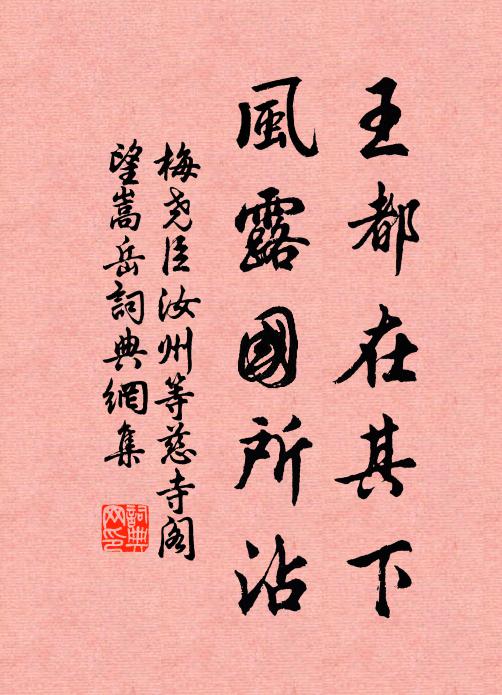 王都在其下
風露國所沾
梅尧臣汝州等慈寺阁
望嵩岳詞典網集
詞典
网印